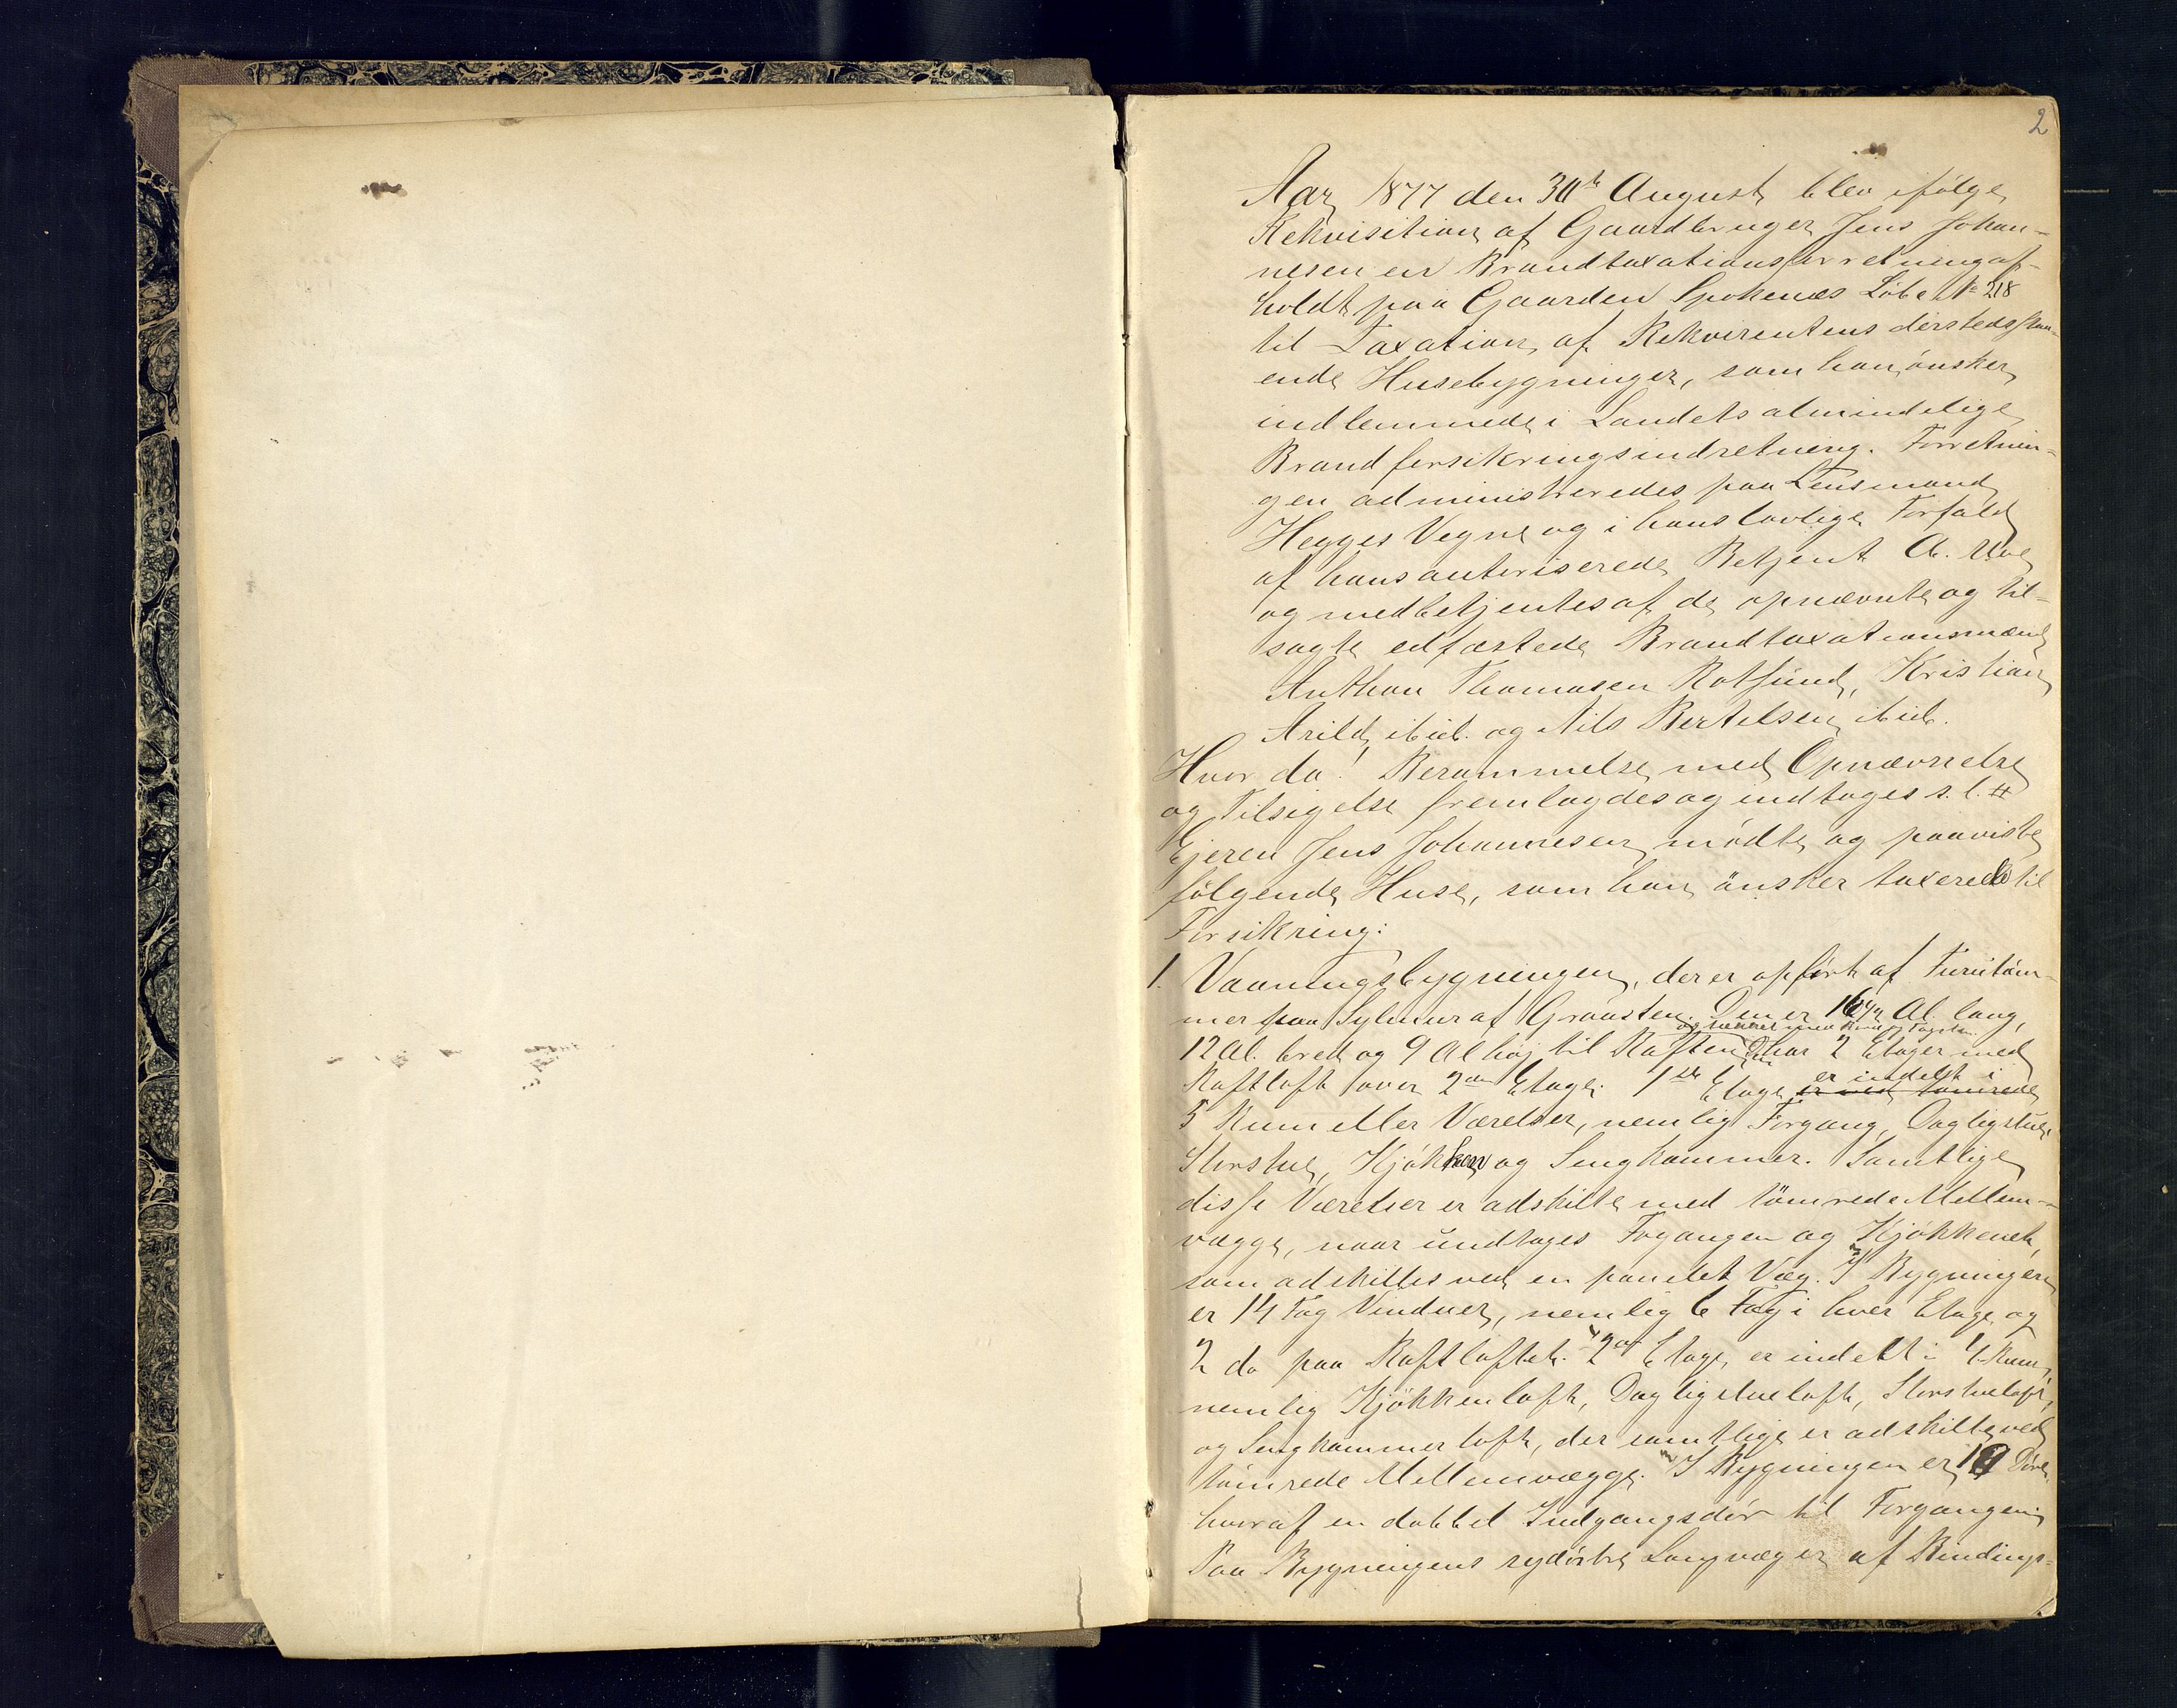 2
Aar 1877 den 30te August blev ifølge
Rekvisition af Gaardbruger Jens Johan-
nesen en Brandtaxationsforretning af-
holdt paa Gaarden Spokenæs Løbe No 218
til Taxation af Rekvirentens dersteds staa-
ende Husebygninger, som han ønsker
indlemmede i Landets almindelige
Brandforsikringsindretning. Forretnin-
gen administreredes paa Lensmand
Hegges Vegne og i hans lovlige Forfald
af hans autoriserede Betjent A.
og medbetjentes af de opnævnte og til-
sagte edfæstede Brandtaxationsmænd
Anthon Thomasen Rotsund, Kristian
Arild ibid. og Nils Bertelsen ibid.
Hvor da! Berammelse med Opnævnelse
og Tilsigelse fremlagdes og indtages s. l. #
Ejeren Jens Johannesen mødte og paaviste
følgende Huse, som han ønsker taxerede til
Forsikring:
1. Vaaningsbygningen, der er opført af Furutøm-
mer paa Sylmur af Graasten. Den er 16 Al. lang,
og tækket med Næver og Tagsten.
12 Al. bred og 9 Al høj til Raften Den har 2 Etager med
Raftloft over 2den Etage. 1ste Etage er med tømrede
er indelt i
5 Rum eller Værelser, nemlig Forgang, Dagligstue,
Storstue, Kjøkken og Sengkammer. Samtlige
disse Værelser er adskilte med tømrede Mellem-
vægge, naar undtages Fogangen og Kjøkkenet,
som adskilles ved en panelet Væg. I Bygningen
er 14 Fag Vinduer, nemlig 6 Fag i hver Etage og
2 do paa Raftloftet. 2den Etage er indelt i 4 Rum,
nemlig Kjøkkenloft, Dagligstueloft, Storstueloft,
og Sengkammerloft, der samtlige er adskilte ved
tømrede Mellemvægge. I Bygningen er Døre,
hvoraf en dobbel Indgangsdør til Forgangen.
Paa Bygningens sydøstre Langvæg er af Bindings-